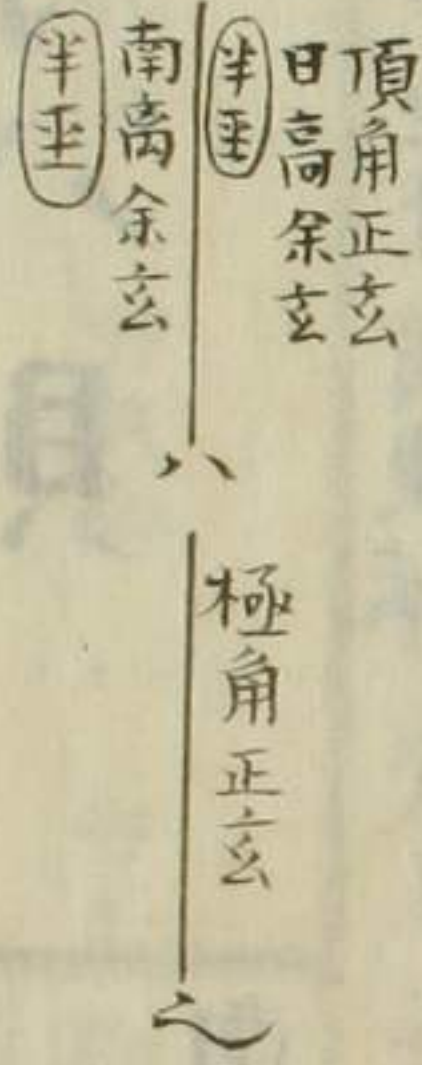 頂角正玄
日高余玄
半玊
南离余玄
半玊
ハ
極角正玄
之